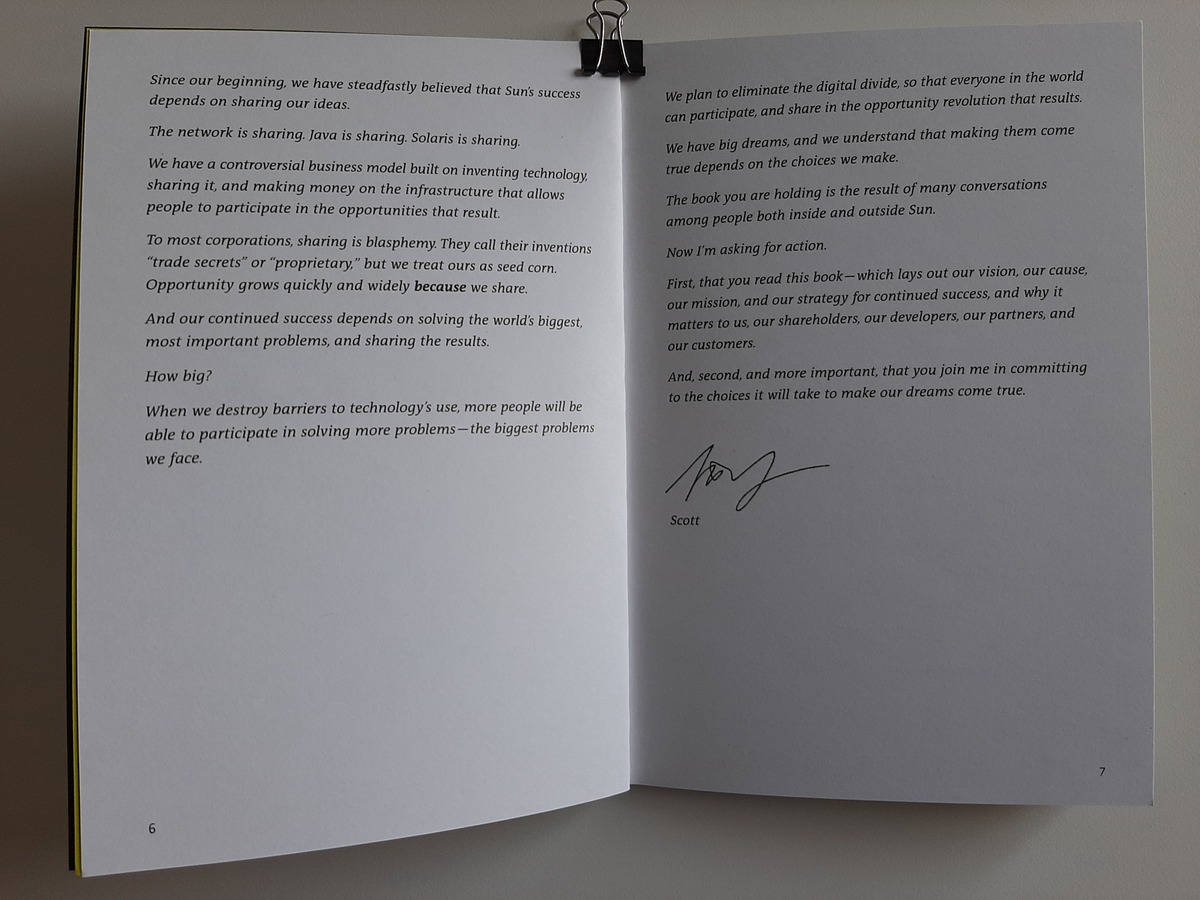 Since our beginning, we have steadfastly believed that Sun's success
depends on sharing our ideas.
The network is sharing. Java is sharing. Solaris is sharing.
We have a controversial business model built on inventing technology,
sharing it, and making money on the infrastructure that allows
people to participate in the opportunities that result.
To most corporations, sharing is blasphemy. They call their inventions
“trade secrets” or “proprietary,” but we treat ours as seed corn.
Opportunity grows quickly and widely because we share.
And our continued success depends on solving the world's biggest,
most important problems, and sharing the results.
How big?
When we destroy barriers to technology's use, more people will be
able to participate in solving more problems—the biggest problems
we face.
6
We plan to eliminate the digital divide, so that everyone in the world
can participate, and share in the opportunity revolution that results.
We have big dreams, and we understand that making them come
true depends on the choices we make.
The book you are holding is the result of many conversations
among people both inside and outside Sun.
Now I'm asking for action.
First, that you read this book—which lays out our vision, our cause,
our mission, and our strategy for continued success, and why it
matters to us, our shareholders, our developers, our partners, and
our customers.
And, second, and more important, that you join me in committing
to the choices it will take to make our dreams come true.
Scott
7